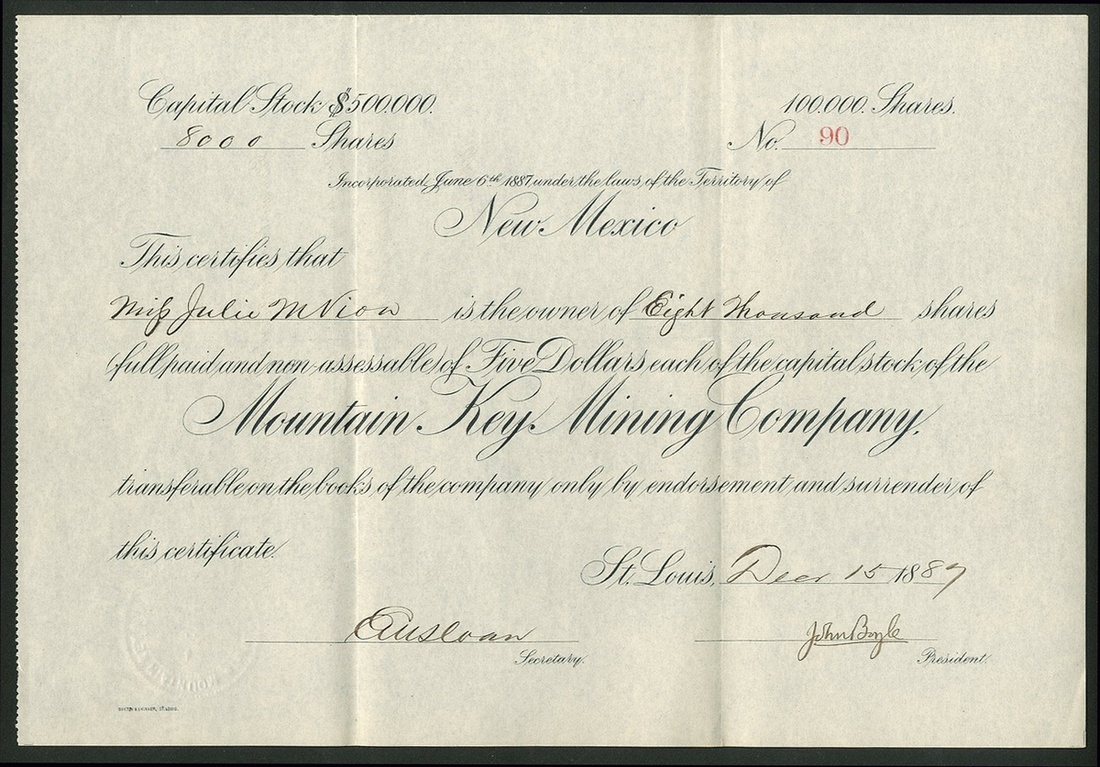 Capital Stock $500.000.
100.000. Shares.
8000 Shares
No. 90
Incorporated June 6th 1887 under the laws of the Territory of
New Mexico
This certifies that
Miss Julie is the owner of Eight Thousand shares
(full paid and non-assessable) of Five Dollars each of the capital stock of the
Mountain Key Mining Company.
transferable on the books of the company only by endorsement and surrender of
this certificate.
St. Louis, Decr 15 1887
John Boyle
Secretary.
President.